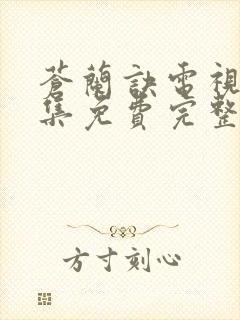 蒼蘭訣電視
集免費完整
方寸刻心